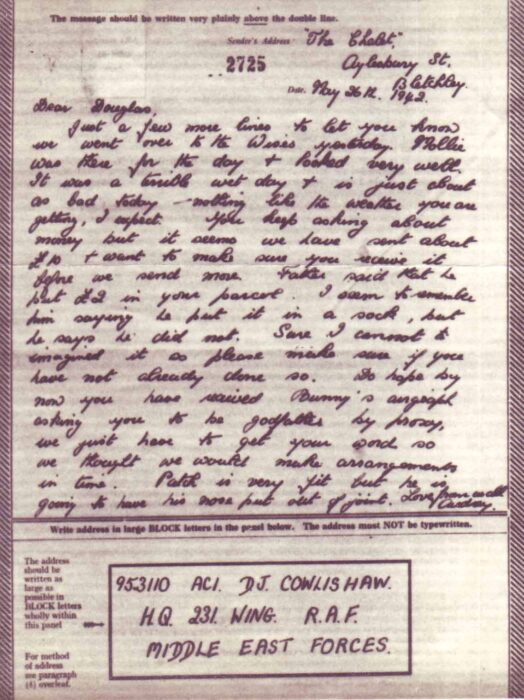 The message should be written very plainly above the double line.
Sender's Address "The Chalet",
2725
Aylesbury St.
Bletchley.
Date. May 26th. 1942.
Dear Douglas,
Just a few more lines to let you know
we went over to the Wises yesterday. Mollie
was there for the day + looked very well.
It was a terrible wet day + is just about
as bad today - nothing like the weather you are
getting, I expect. You keep asking about
money but it seems we have sent about
£10 + want to make sure you receive it
before we send more. Father said that he
put £2 in your parcel. I seem to remember
him saying he put it in a sock, but
he says he did not. Sure I cannot to
imagined it so please make sure if you
have not already done so. Do hope by
now you have received Bunny's airgraph
asking you to be godfather by proxy,
we just have to get your word so
we thought we would make arrangements
in time. Patch is very fit but he is
going to have his nose put out of joint. Love from us all
Write address in large BLOCK letters in the panel below. The address must NOT be typewritten.
The address
should be
written as
large as
possible in
BLOCK letters
wholly within
this panel
For method
of address
see paragraph
(4) overleaf.
953110 AC1. D.J. COWLISHAW.
H.Q. 231. WING. R.A.F.
MIDDLE EAST FORCES.